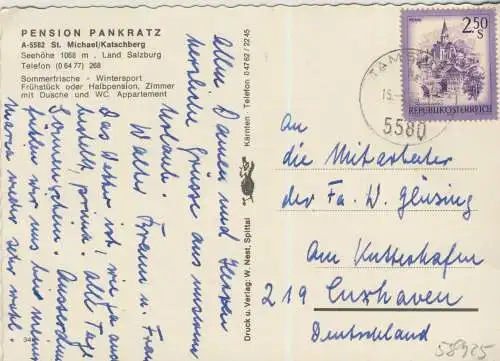 PENSION PANKRATZ
A-5582 St. Michael/Katschberg
Seehöhe 1068 m . Land Salzburg
Telefon (0 64 77) 268
Sommerfrische - Wintersport
Frühstück oder Halbpension, Zimmer
mit Dusche und WC Appartement
Allen Damen und Herren
herzliche Grüsse aus unserem
Urlaub.
Walter Braun u. Frau
Das Wetter ist, wie ja aus
prima. alle Tage
Sonnenschein.
fühlen wir uns hier
wieder sehr wohl.
Druck u. Verlag: W. Nest, Spittal
Kärnten Telefon 0 47 62 / 22 45
2.50
S
REPUBLIK ÖSTERREICH
TAMS
5580
An
die Mitarbeiter
der Fa. W. Glüsing
Am Kutterhafen
219 Cuxhaven
Deutschland
58925